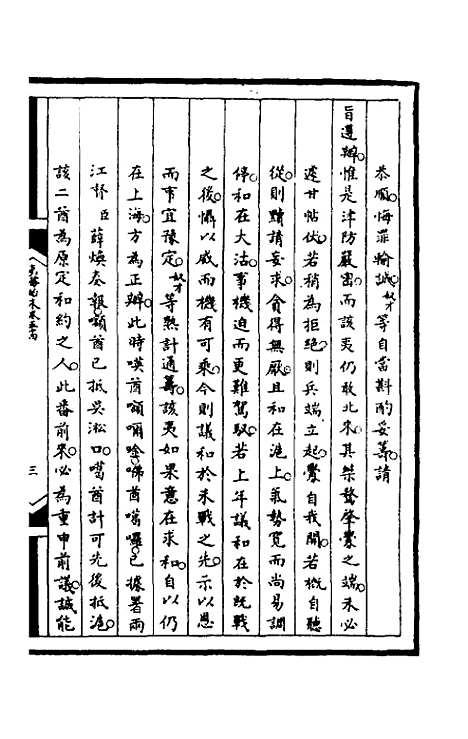 恭順。悔罪輸誠。奴才等自當斟酌妥籌。請
旨遵辦。惟是津防嚴密。而該夷仍敢北來。其桀驁肇釁之端。未必
遽甘帖伏。若稍為拒絕。則兵端立起。釁自我開。若概自聽
從。則贖請妄求。貪得無厭。且和在滬上。氣勢寬而尚易調
停。和在大沽。事機迫而更難駕馭。若上年議和在於既戰
之後。懾以威而機有可乘。今則議和於未戰之先。示以恩
而事宜豫定。奴才等熟計通籌。該夷如果意在求和。自以仍
在上海。方為正辦。此時𠸄酋額爾唫。咈酋噶囉。已據署兩
江督臣薛煥奏報。額酋已抵吳淞口。噶酋計可先後抵滬。
該二酋為原定和約之人。此番前來。必為重申前議。誠能
三